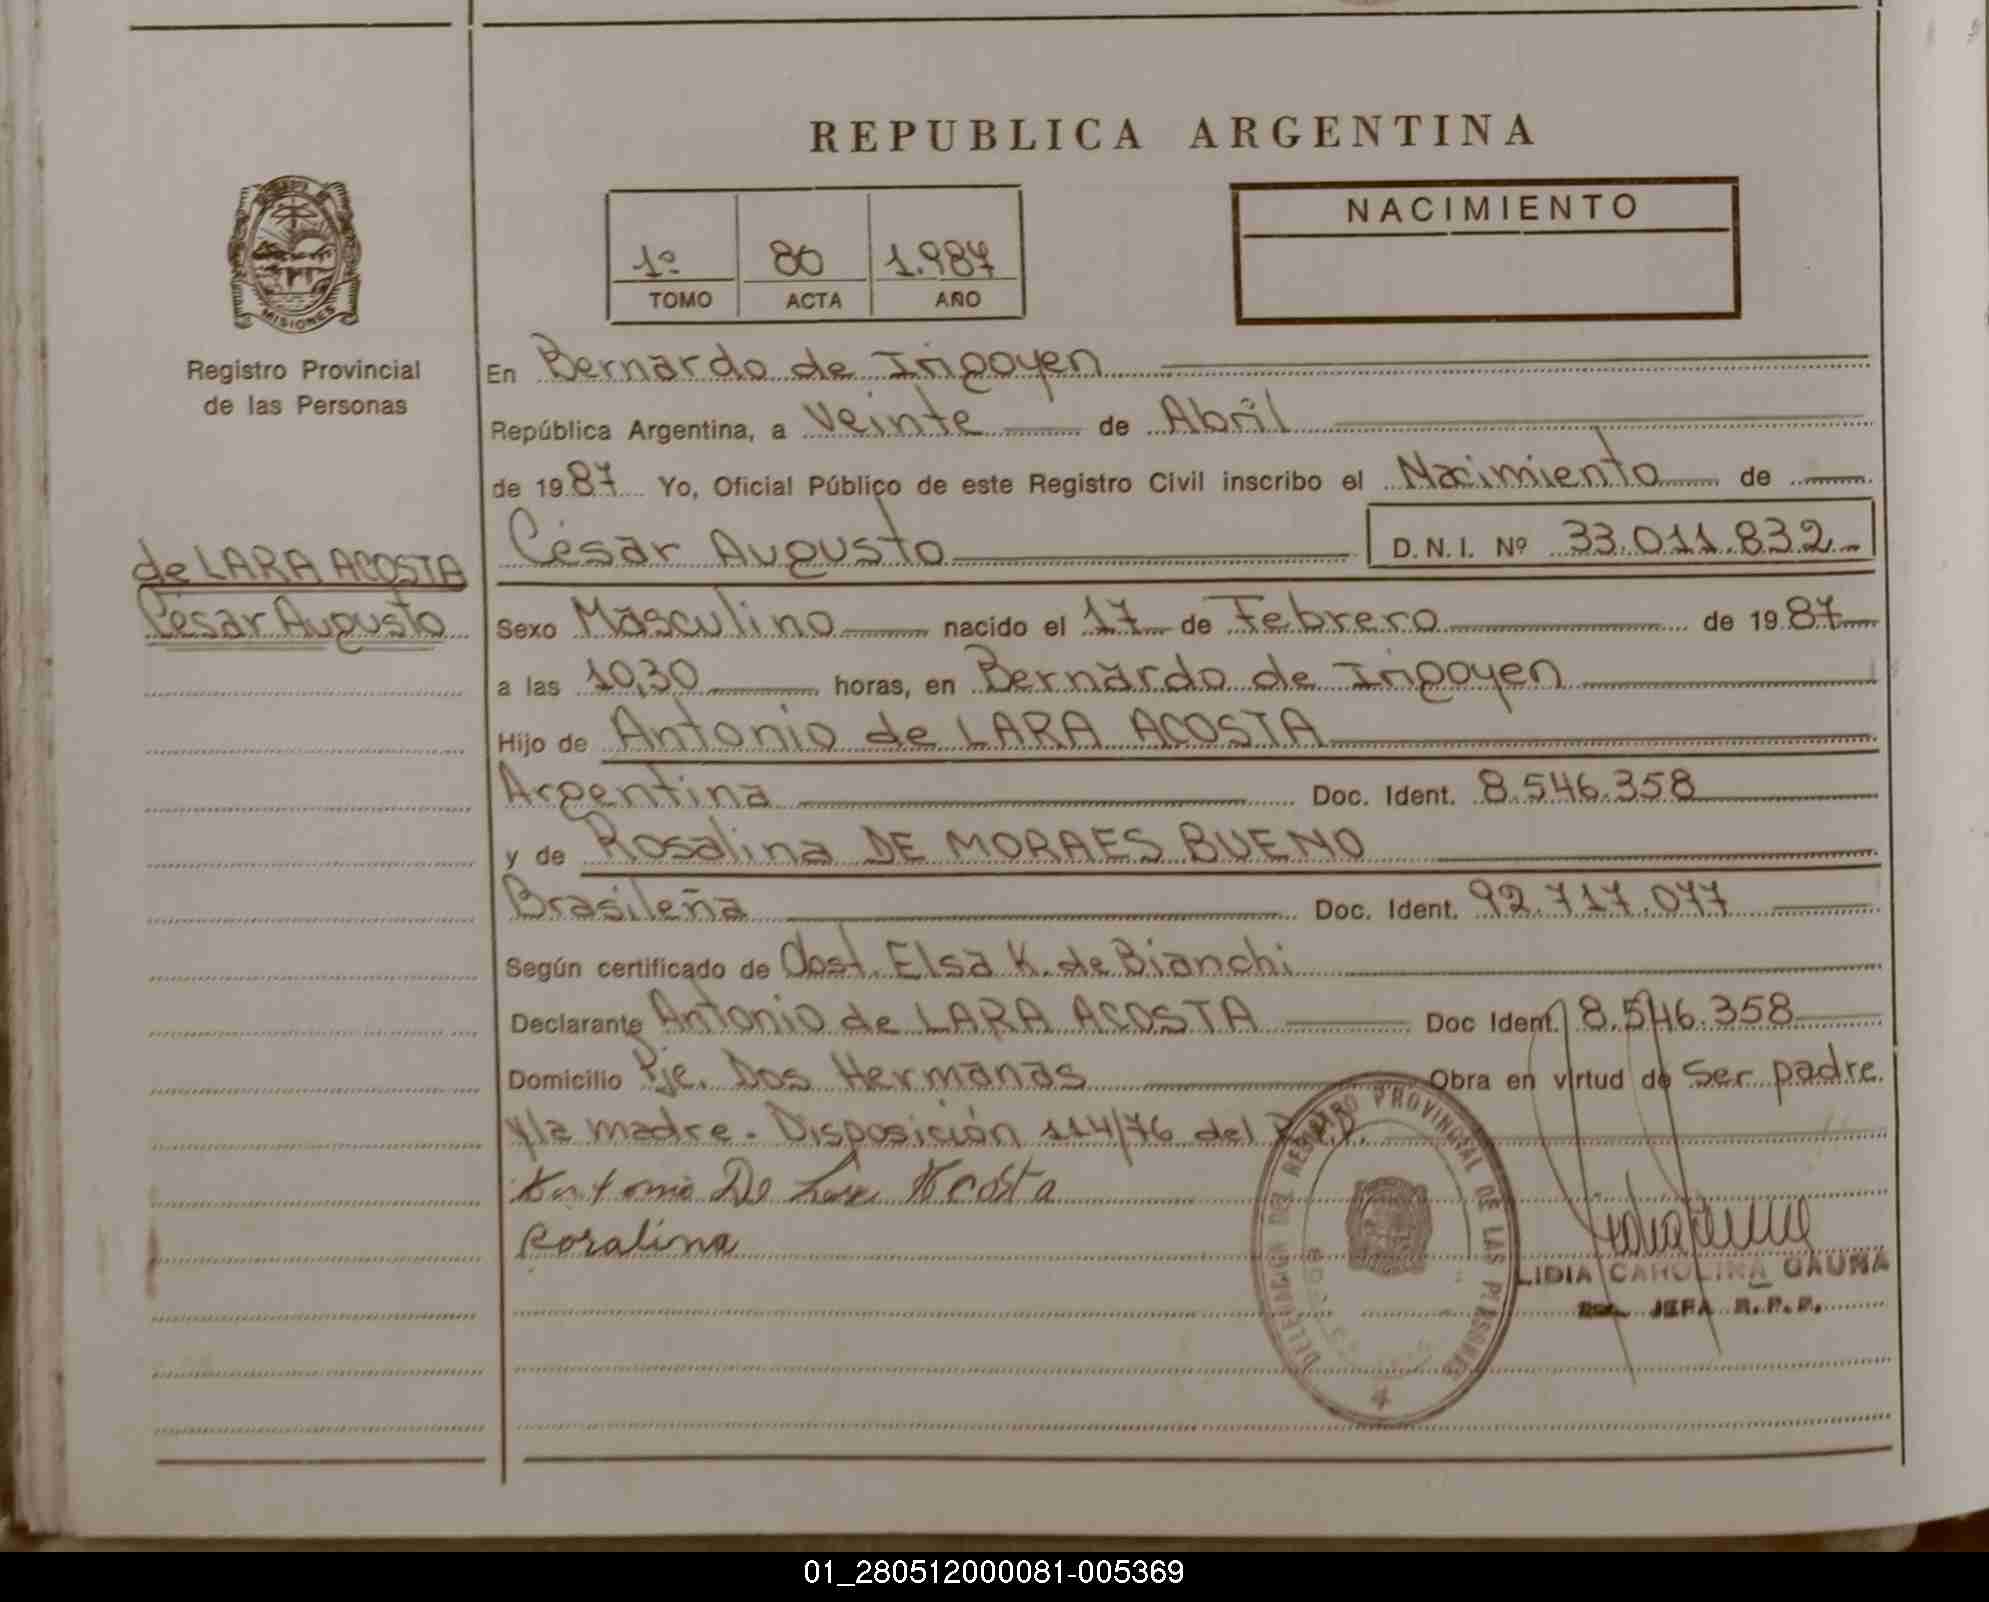 REPUBLICA ARGENTINA
NACIMIENTO
1º 80 1.987
TOMO ACTA AÑO
MISIONES
Registro Provincial
de las Personas
de LARA ACOSTA
César Augusto
En Bernardo de Irigoyen
República Argentina, a veinte de Abril
de 1987 Yo, Oficial Público de este Registro Civil inscribo el Nacimiento de
César Augusto D.N.I. Nº 33.011.832
Sexo Masculino nacido el 17 de Febrero de 1987
a las 10,30 horas, en Bernardo de Irigoyen
Hijo de Antonio de LARA ACOSTA
Argentina Doc. Ident. 8.546.358
y de Rosalina DE MORAES BUENO
Brasileña Doc. Ident. 92.717.077
Según certificado de Obst. Elsa K. de Bianchi
Declarante Antonio de LARA ACOSTA Doc Ident. 8.546.358
Domicilio Pje. Dos Hermanas Obra en virtud de Ser padre
y la madre. Disposición 114/76 del
Antonio De Lara Acosta
Rosalina
REGISTRO PROVINCIAL DE LAS PERSONAS
4
LIDIA CAROLINA GAUNA
JEFA R.P.P.
01_280512000081-005369